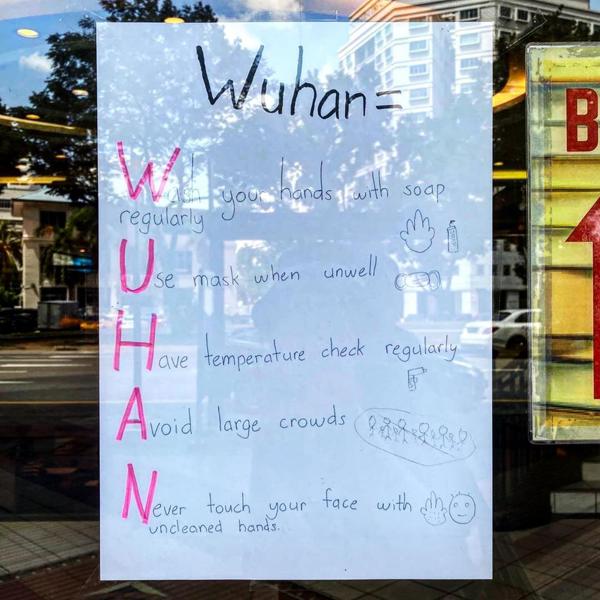 Wuhan =
Wash your hands with soap
regularly
Use mask when unwell
Have temperature check regularly
Avoid large crowds
Never touch your face with
uncleaned hands.
B